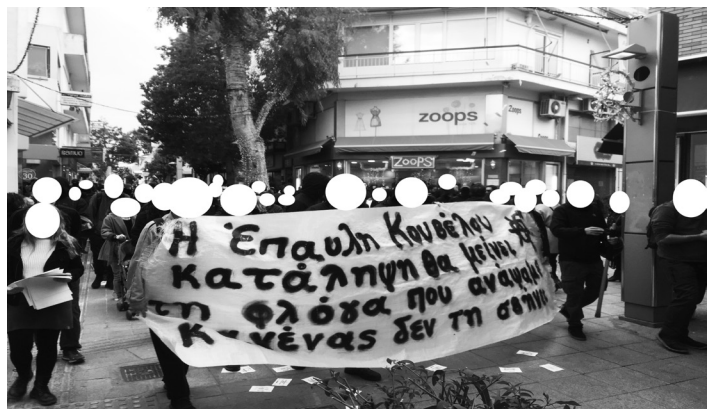 zoops
Zoops
ZOOPS
30
Η Έπαυλη Κουβέλου
κατάληψη θα μείνει
τη φλόγα που ανάψαμε
Κανένας δεν τη σβήνει